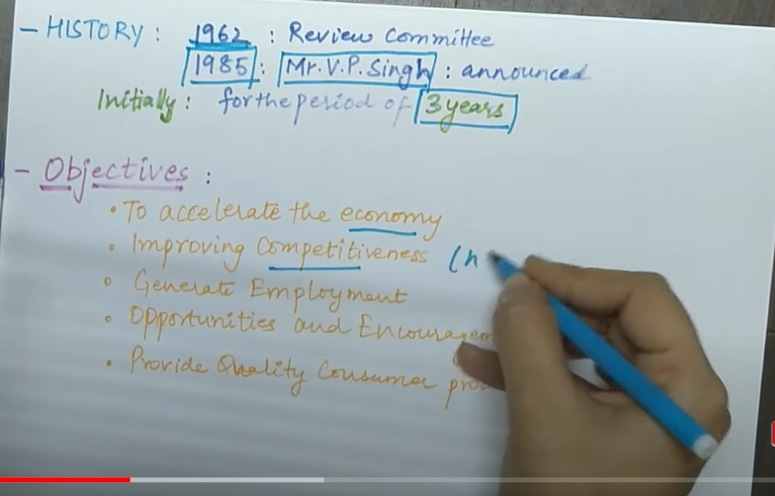 - HISTORY : 1962 : Review Committee
1985 : Mr. V.P. Singh : announced
Initially : for the period of 3 years
- Objectives :
• To accelerate the economy
• Improving Competitiveness (
• Generate Employment
• Opportunities and
• Provide Quality Consumer